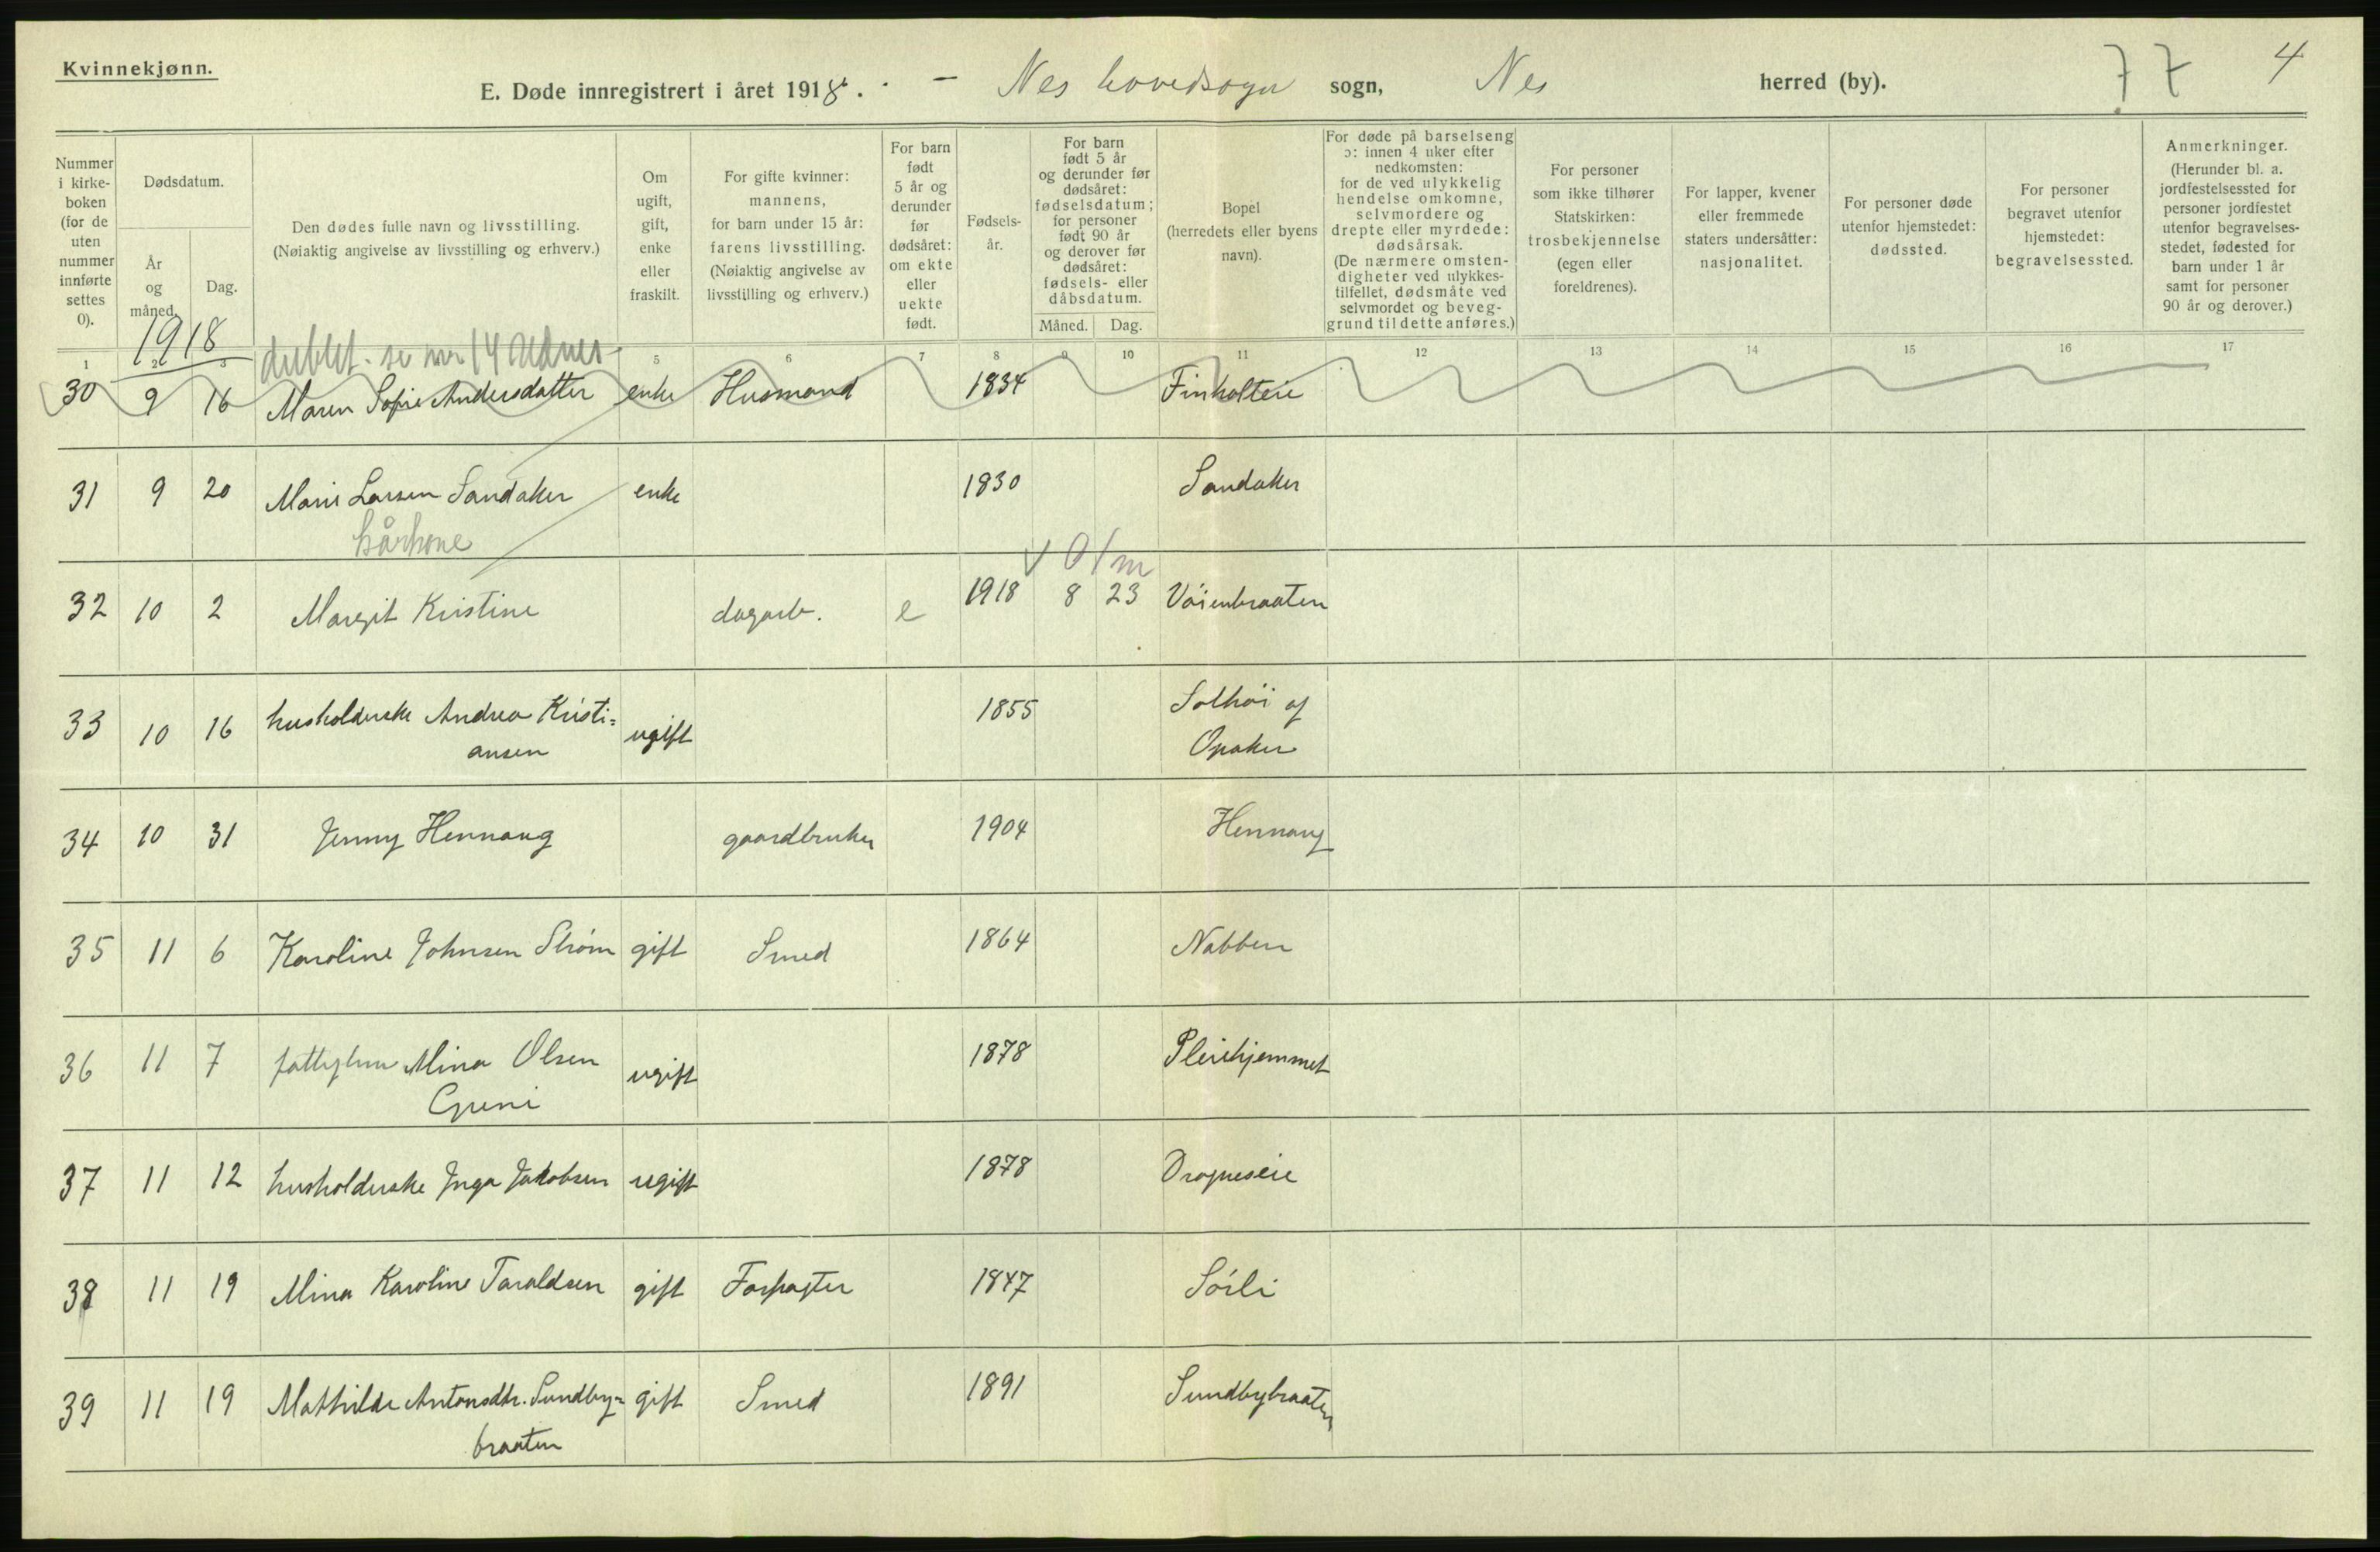 Kvinnekjønn.
E. Døde innregistrert i året 1918. - Nes hovedsogn sogn, Nes herred (by). 77 4
Nummer i kirke-boken (for de uten nummer innførte settes 0).
Dødsdatum.
År og måned.
Dag.
Den dødes fulle navn og livsstilling.
(Nøiaktig angivelse av livsstilling og erhverv.)
Om ugift, gift, enke eller fraskilt.
For gifte kvinner: mannens, for barn under 15 år: farens livsstilling. (Nøiaktig angivelse av livsstilling og erhverv.)
For barn født 5 år og derunder før dødsåret: om ekte eller uekte født.
Fødsels-år.
For barn født 5 år og derunder før dødsåret: fødselsdatum; for personer født 90 år og derover før dødsåret: fødsels- eller dåbsdatum.
Måned. Dag.
Bopel (herredets eller byens navn).
For døde på barselseng ɔ: innen 4 uker efter nedkomsten: for de ved ulykkelig hendelse omkomne, selvmordere og drepte eller myrdede: dødsårsak. (De nærmere omsten-digheter ved ulykkes-tilfellet, dødsmåte ved selvmordet og beveg-grund til dette anføres.)
For personer som ikke tilhører Statskirken: trosbekjennelse (egen eller foreldrenes).
For lapper, kvener eller fremmede staters undersåtter: nasjonalitet.
For personer døde utenfor hjemstedet: dødssted.
For personer begravet utenfor hjemstedet: begravelsessted.
Anmerkninger. (Herunder bl. a. jordfestelsessted for personer jordfestet utenfor begravelses-stedet, fødested for barn under 1 år samt for personer 90 år og derover.)
1918
dublet. se nr 14
1 2 3 5 6 7 8 9 10 11 12 13 14 15 16 17
30 9 16 Maren Sofie Andersdatter enke Husmand 1834 Finholteie
31 9 20 Marie Larsen Sandaker enke 1830 Sandaker
kårkone
v 0/m
32 10 2 Margit Kristine dagarb. e 1918 8 23 Vöienbraaten
33 10 16 husholderske Andrea Kristi= ugift 1855 Solhöi af
ansen Opaker
34 10 31 Jenny Hennaug gaardbruker 1904 Hennaug
35 11 6 Karoline Johnsen Ström gift Smed 1864 Nabben
36 11 7 fattiglem Mina Olsen ugift 1878 Pleiehjemmet
Greni
37 11 12 husholderske Inga Jakobsen ugift 1878 Dragneseie
38 11 19 Mina Karoline Taraldsen gift Forpagter 1847 Sörli
39 11 19 Mathilde Antonsdtr. Sundby= gift Smed 1891 Sundbybraaten
braaten